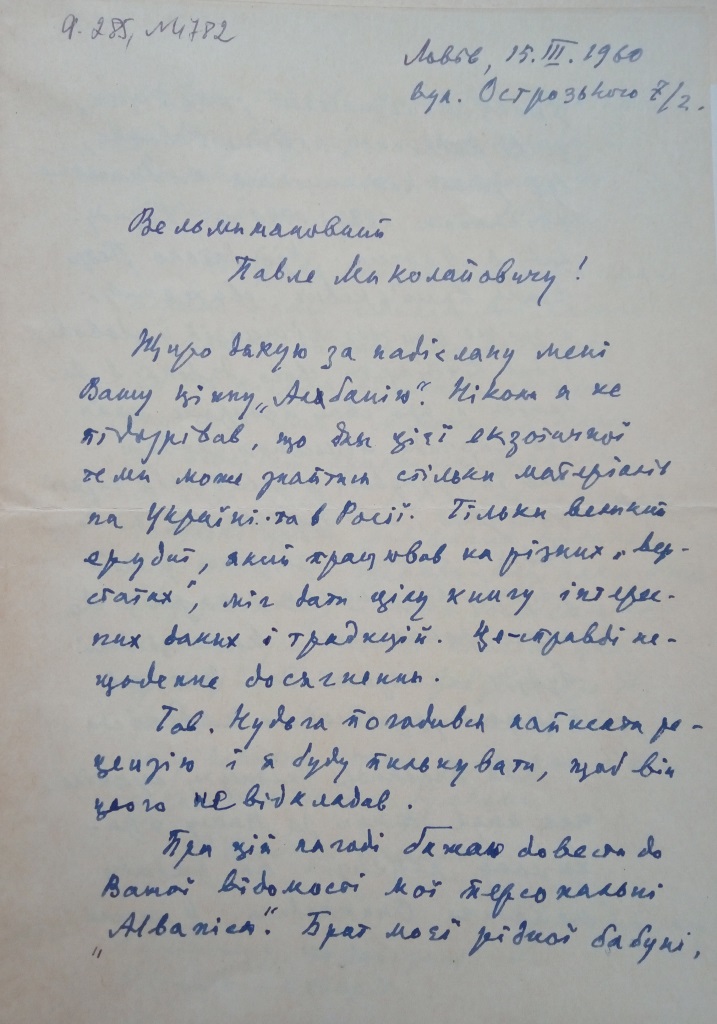 Ф. 285, №4782
Львів, 15.III.1960
вул. Острозького 7/2.
Вельмишановний
Павле Миколайовичу!
Щиро дякую за надіслану мені
Вашу цінну „Албанію". Ніколи я не
підозрівав, що для цієї екзотичної
теми може знайтись стільки матеріялів
на Україні та в Росії. Тільки великий
ерудит, який працював на різних „вер-
статах", міг дати цілу книгу інтерес-
них даних і традицій. Це справді не-
щоденне досягнення.
Тов. Нудьга погодився написати ре-
цензію і я буду пильнувати, щоб він
цього не відкладав.
При цій нагоді бажаю довести до
Вашої відомості мої персональні
„Albanica". Брат моєї рідної бабуні,